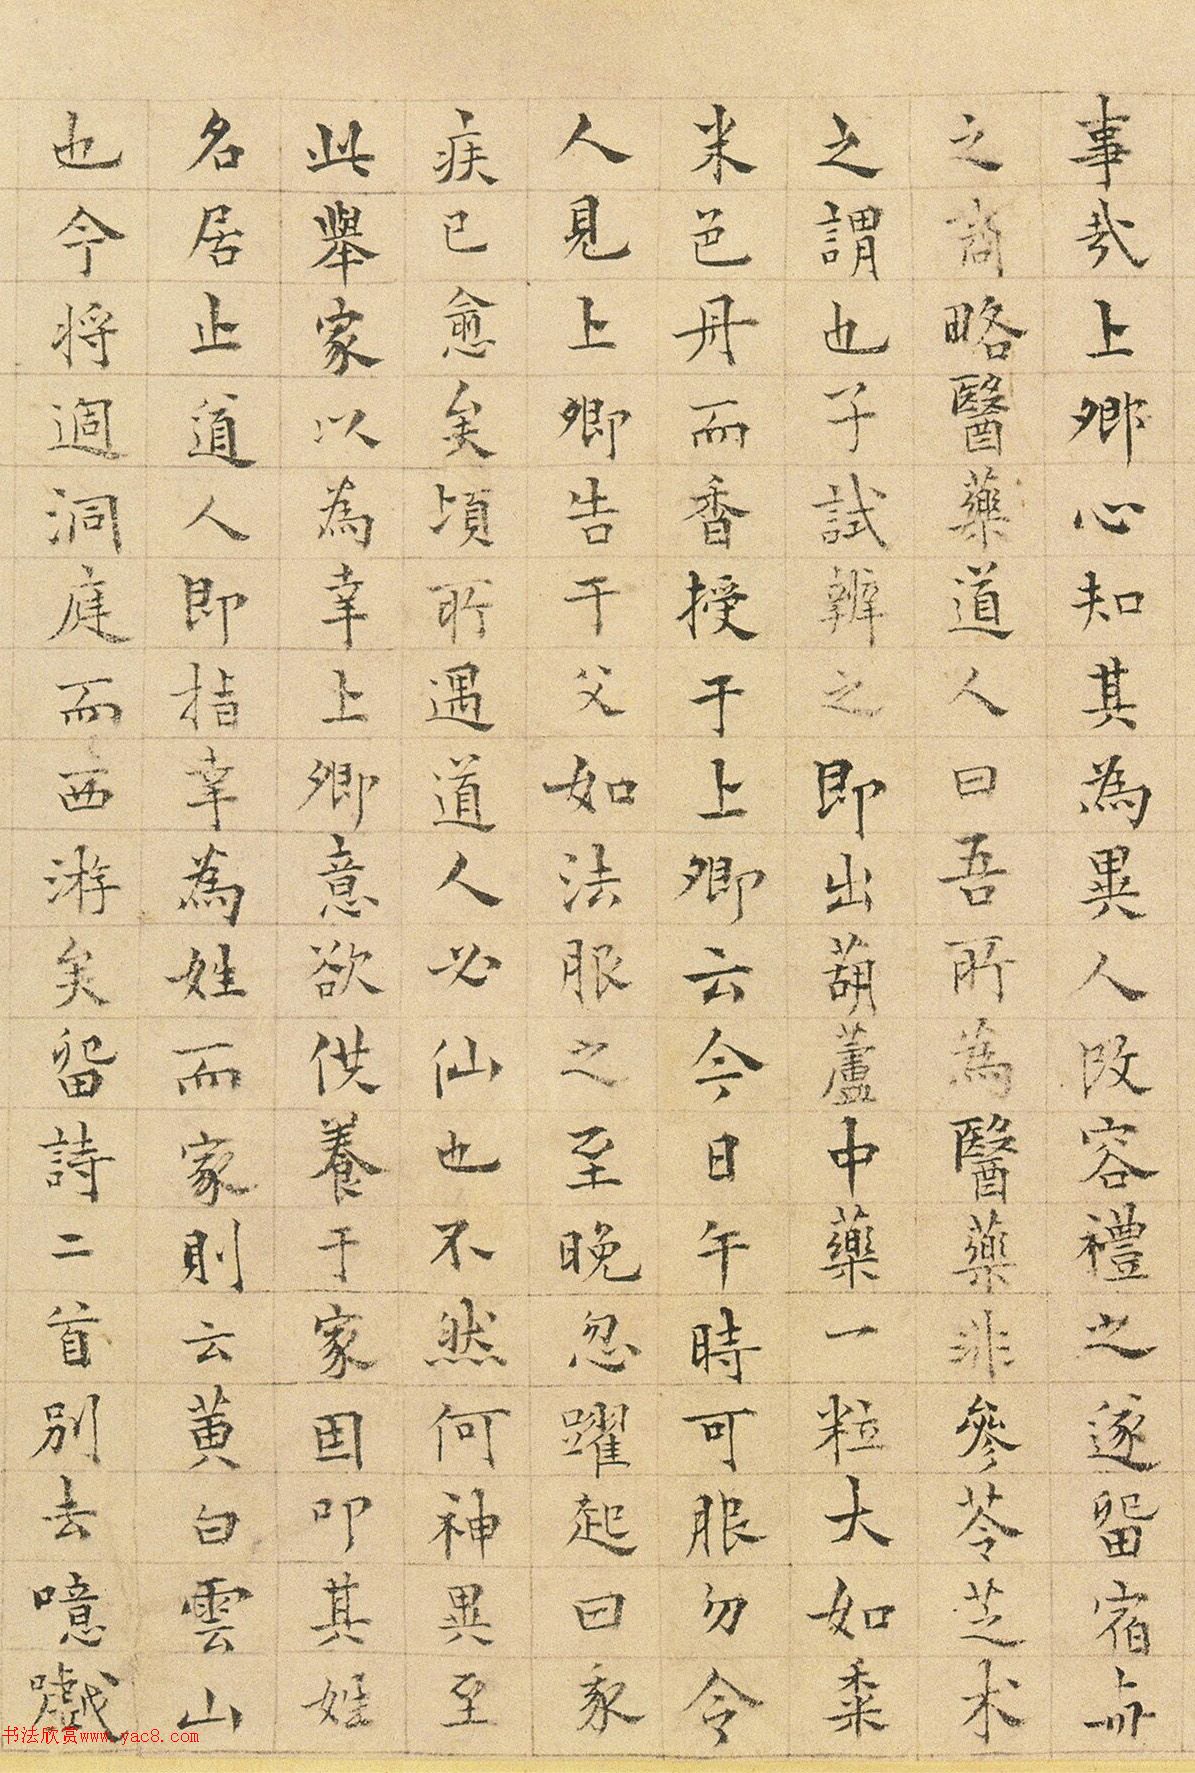 事哉上卿心知其為異人改容禮之遂留宿与
之商略醫藥道人曰吾所為醫藥非參苓芝术
之謂也子試辨之即出葫蘆中藥一粒大如黍
米色丹而香授于上卿云今日午時可服勿令
人見上卿告于父如法服之至晚忽躍起曰我
疾已愈矣頃所遇道人必仙也不然何神異至
此舉家以為幸上卿意欲供養于家因叩其姓
名居止道人即指幸為姓而家則云黄白雲山
也今将週洞庭而西游矣留詩二首別去噫嚱
书法欣赏www.yac8.com